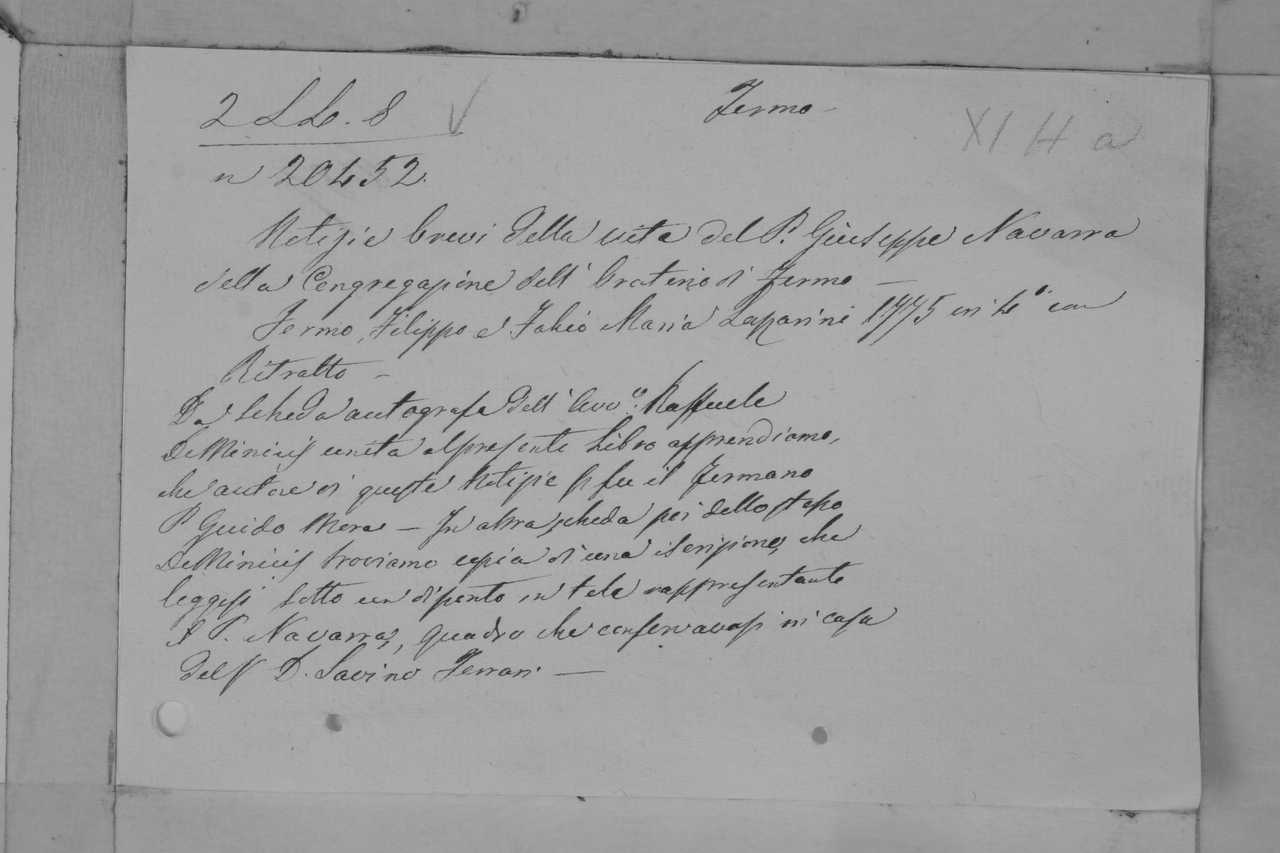 2 LLo. 8 Fermo - XI H a
n 20452.
Notizie brevi della vita del P. Giuseppe Navarra
della Congregazione dell' Oratorio di Fermo -
Fermo, Filippo e Fabio Maria Lazzarini 1775 in 4° con
Ritratto -
Da scheda autografa dell' Avv.° Raffaele
DeMinicis unita al presente Libro apprendiamo,
che autore di queste Notizie si fu il Fermano
P. Guido Mora - In altra scheda poi dello stesso
DeMinicis troviamo copia di una iscrizione, che
leggesi sotto un dipinto in tela rappresentante
I P. Navarra, quadro che conservavasi in casa
del S D. Savino Ferrari -